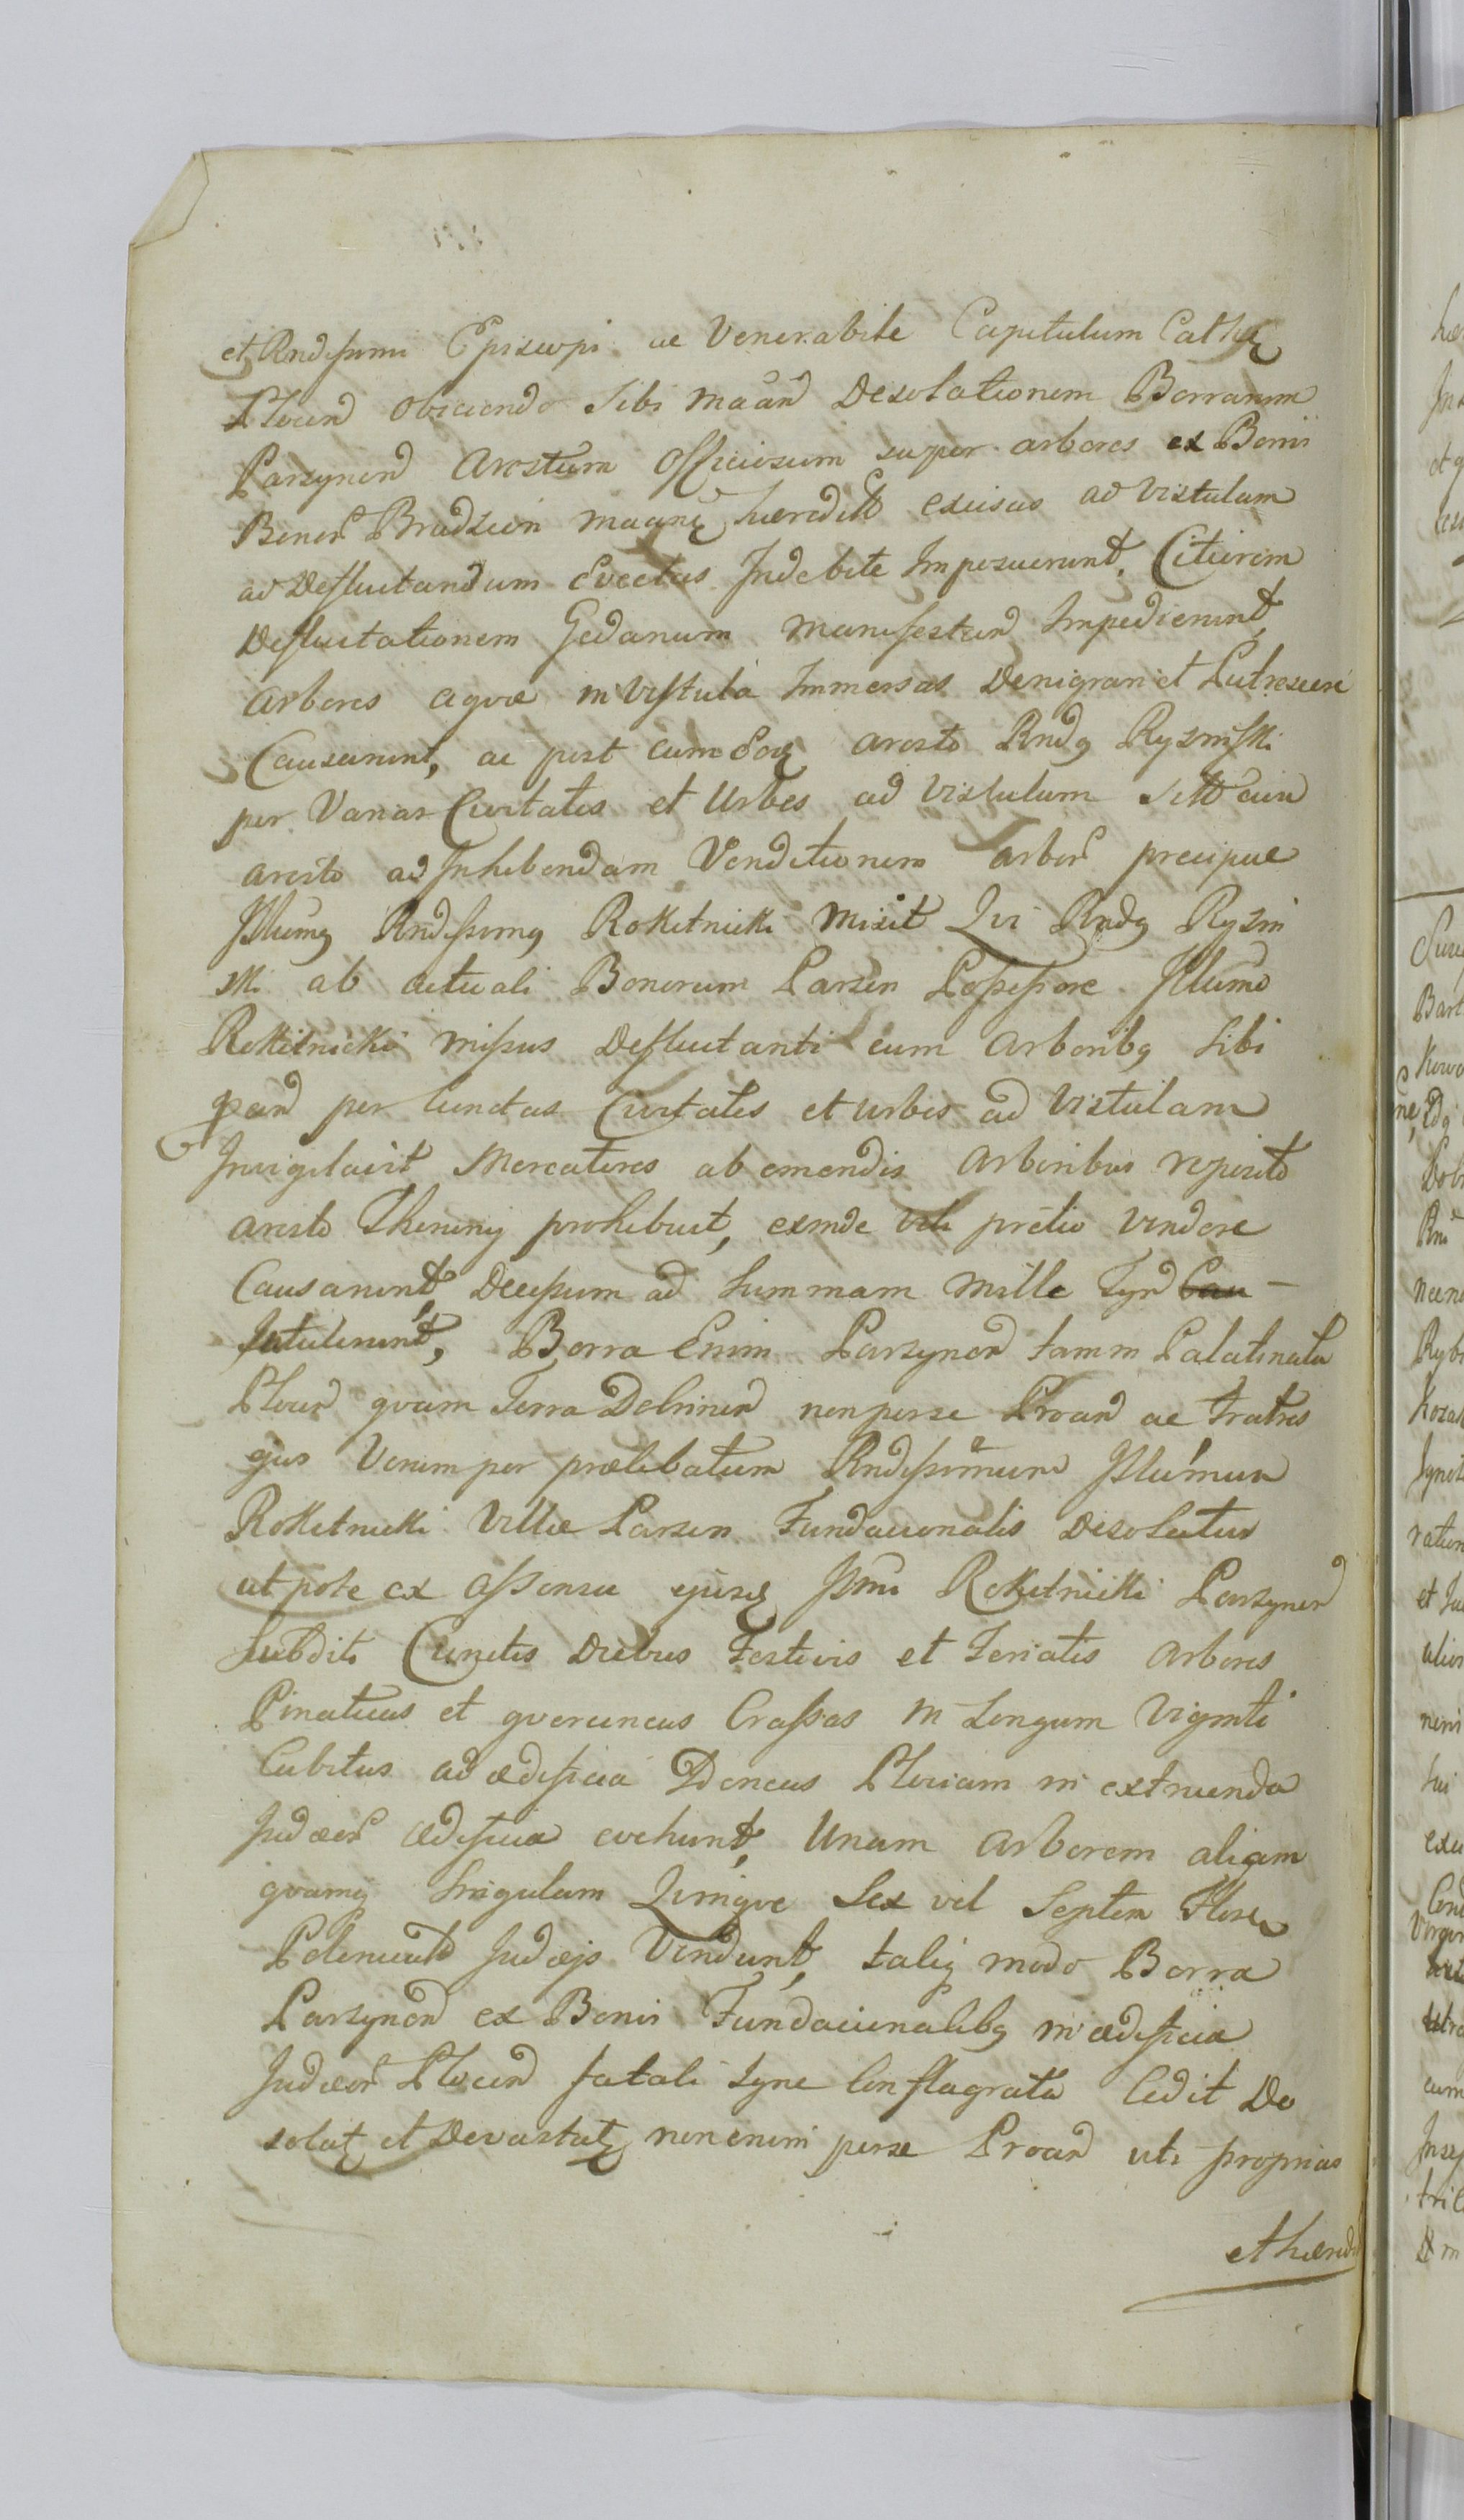 et Rndissimi Episcopi ac Venerabile Capitulum Cathe
Plocen obiciendo sibi maan Desolationem Borrarum
Parzynen Arestum Officiosum super arbores ex Bonis
Bonor Brudzein maane haeredit excisas ad Vistulam
ad Defluitandum Evectas Indebite Imposuerunt, Citeriorem
Defluitationem Gedanum manifestan Impedierunt,
Arbores aqvae in Vistula Immersas Denigrari et Putrescere
Causarunt, ac post cum Eoq aresto Rndg Ryzinski
per Varias Civitates et Urbes ad Vistulam sitt cum
aresto ad Inhibendam Venditionem arbor precipue
Illumg Rndissimg Rokitnicki misit Qui Rndg Ryzin
ski ab actuali Bonorum Parzen Possessore Illumo
Rokitnicki missus Defluitanti cum Arboribg sibi
per cunctas Civitates et urbes ad Vistulam
Invigilavit Mercatores ab emendis Arboribus reposito
aresto prohibuit, exinde vili pretio vendere
Causarunt, Decessum ad summam mille Tyn Cau -
Intulerunt, Borra Enim Parzynen tam in Palatinatu
Plocen qvam Terra Dobrinen non per se Proan ac fratres
ejus Verum per praelibatum Rndissimum Illumum
Rokitnicki Villae Parzen Fundacionalis Desolatur
utpote ex assensu ejusq Illmi Rokitnicki Parzynen
Subditi Cunctis Diebus Festivis et Feriatis Arbores
Pineticas et qverceneas Crassas in Longum Viginti
Cubitus ad aedificia Idoneas Plociam in extruenda
Judaeor aedificia evehunt, Unam Arborem aliqam
qvamq singulam Qvinqve Sex vel Septem Floren
Polonicalt Judaejs Vendunt, taliq modo Borra
Parzynen ex Bonis Fundacionalibg in aedificia
Judaeor Plocen fatali Igne Conflagrata Cedit De
solat et Devastat, non enim per se Proan uti proprias
et haered